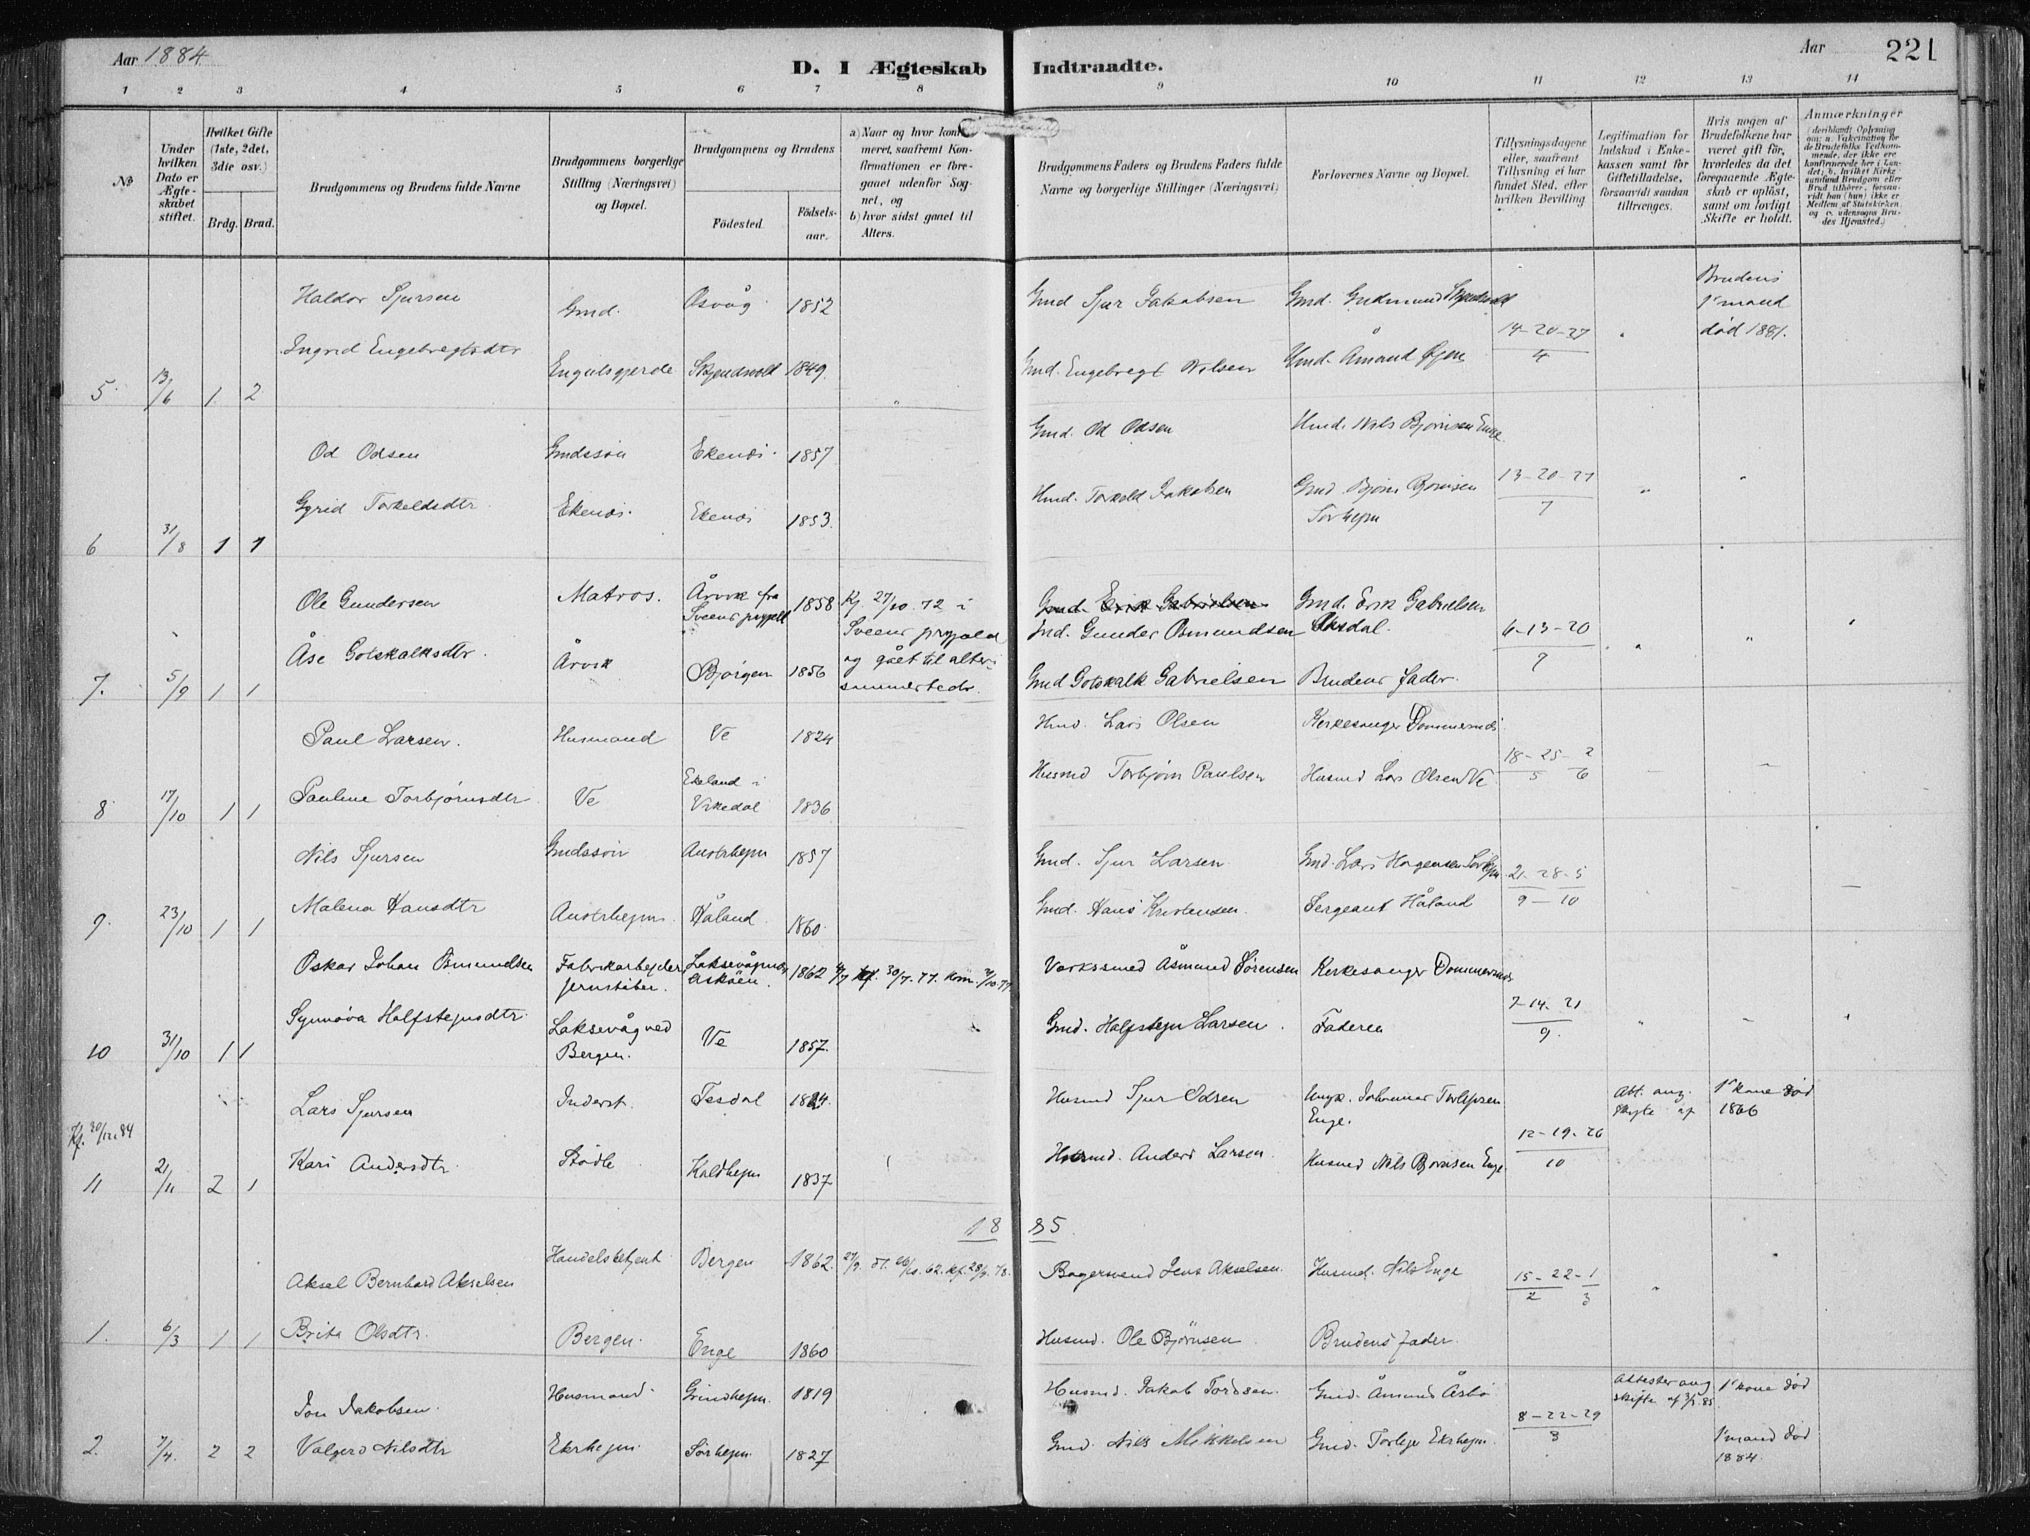 Aar 1884
D. I Ægteskab Indtraadte.
Aar
221
1 2 3 4 5 6 7 8 9 10 11 12 13 14
No
Under hvilken Dato er Ægteskabet stiftet.
Hvilket Gifte (1ste, 2det, 3die osv.)
Brdg. Brud.
Brudgommens og Brudens fulde Navne
Brudgommens borgerlige Stilling (Næringsvei) og Bopæl.
Brudgommens og Brudens
Födested.
Födselsaar.
a) Naar og hvor konfirmeret, saafremt Konfirmationen er foregaaet udenfor Sognet, og
b) hvor sidst gaaet til Alters.
Brudgommens Faders og Brudens Faders fulde Navne og borgerlige Stillinger (Næringsvei)
Forlovernes Navne og Bopæl.
Tillysningsdagene eller, saafremt Tillysning ei har fundet Sted, efter hvilken Bevilling
Legitimation for Indskud i Enkekassen samt for Giftetilladelse, forsaavidt saadan tiltrænges.
Hvis nogen af Brudefolkene har været gift før, hvorledes da det foregaaende Ægteskab er opløst, samt om lovligt Skifte er holdt.
Anmærkninger
Haldor Sjursen Gmd. Osvåg 1852 Gmd Sjur Jakobsen Gmd. Gudmund
Brudens 1e mand død 1881.
14-20-27
4
5. 13/6 1 2 Ingrid Engebregtsdtr Engulsgjerde Skjendsvold 1849. Gmd. Engebregt Nilsen Hmd. Åmund Øjen
Od Odsen Gmdssøn Ekenæs 1857 Gmd. Od Odsen Hmd. Nils Bjørnsen Enge
13-20-27
7
6 31/8 1 1 Gyrid Torkeldsdtr. Ekenæs. Ekenæs 1853. Hmd. Torkeld Jakobsen Gmd Bjørn Bjørnsen Sørhejm
Ole Gundersen Matros. Årvik fra Sveens prgjæld 1858 Kf. 27/10 72 i Sveens prgjæld og gået til alters sammesteds. Gmd. Erik Gabrielsen Gmd. Erik Gabrielsen
Gmd. Gunder Osmundsen
6-13-20
9
7. 5/9 1 1 Åse Gotskalksdtr. Årvik Bjørgen 1856 Gmd Gotskalk Gabrielsen Brudens fader.
Paul Larsen. Husmand Ve 1824 Hmd Lars Olsen Kirkesanger Dommersnæs
18-25-2
5 6
8 17/10 1 1 Pauline Torbjørnsdtr. Ve Ekeland i Vikedal 1836 Husmd Torbjørn Paulsen Husmd Lars Olsen Ve
Nils Sjursen Gmdssøn Austrhejm 1857 Gmd. Sjur Larsen Gmd. Lars Hågensen Sørhejm
21-28-5
9-10
9. 23/10 1 1 Malena Hansdtr Austrhejm. Håland. 1860. Gmd. Hans Kristensen. Sergeant Håland
Oskar Johan Osmundsen Fabrikarbejder jernstøber. Laksevåg Askøen. 1862 kf. 30/9.77. kom. Værkssmed Åsmund Sørensen Kirkesanger Dommersnæs
7-14-21
9.
10 31/10 1 1 Synnøva Halfstejnsdtr. Laksevåg ved Bergen. Ve 1857. Gmd. Halfstejn Larsen Faderen
Lars Sjursen Inderst. Tesdal 1824. Husmd Sjur Odsen Ungk. Johannes Torlejvsen Enge.
Att. ang. skifte af
1e kone død 1866
Kf. 30/12.84
12-19-26
10
11 21/11 2 1 Kari Andersdtr. Stødle Koldhejm 1837 Husmd. Anders Larsen Husmd Nils Bjørnsen Enge
18 85
Aksel Bernhard Akselsen Handelsbetjent Bergen 1862. Bagersvend Jens Akselsen. Husmd. Nils Enge
15-22-1
2 3
1. 6/3 1 1 Brita Olsdtr. Bergen. Enge 1860 Husmd. Ole Bjørnsen Brudens fader.
Jon Jakobsen. Husmand. Grindhejm. 1819 Husmd. Jakob Tordsen. Gmd. Åmund Åsbø
Attester ang skifte af
1e kone død
8-22-29
3
2. 7/4. 2 2 Valgerd Nilsdtr Ekrhejm. Sørhejm. 1827 Gmd. Nils Mikkelsen Gmd. Torlejv Ekrhejm.
1e mand død 1884.